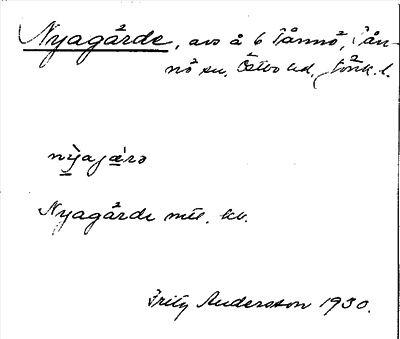 Nyagärde, avs å 6 Tånnö, Tån-
nö sn, Östbo hd, Jönk. l.
nỳajæ̀rə
Nyagärde mtl. kv.
Fritz Andersson 1930.